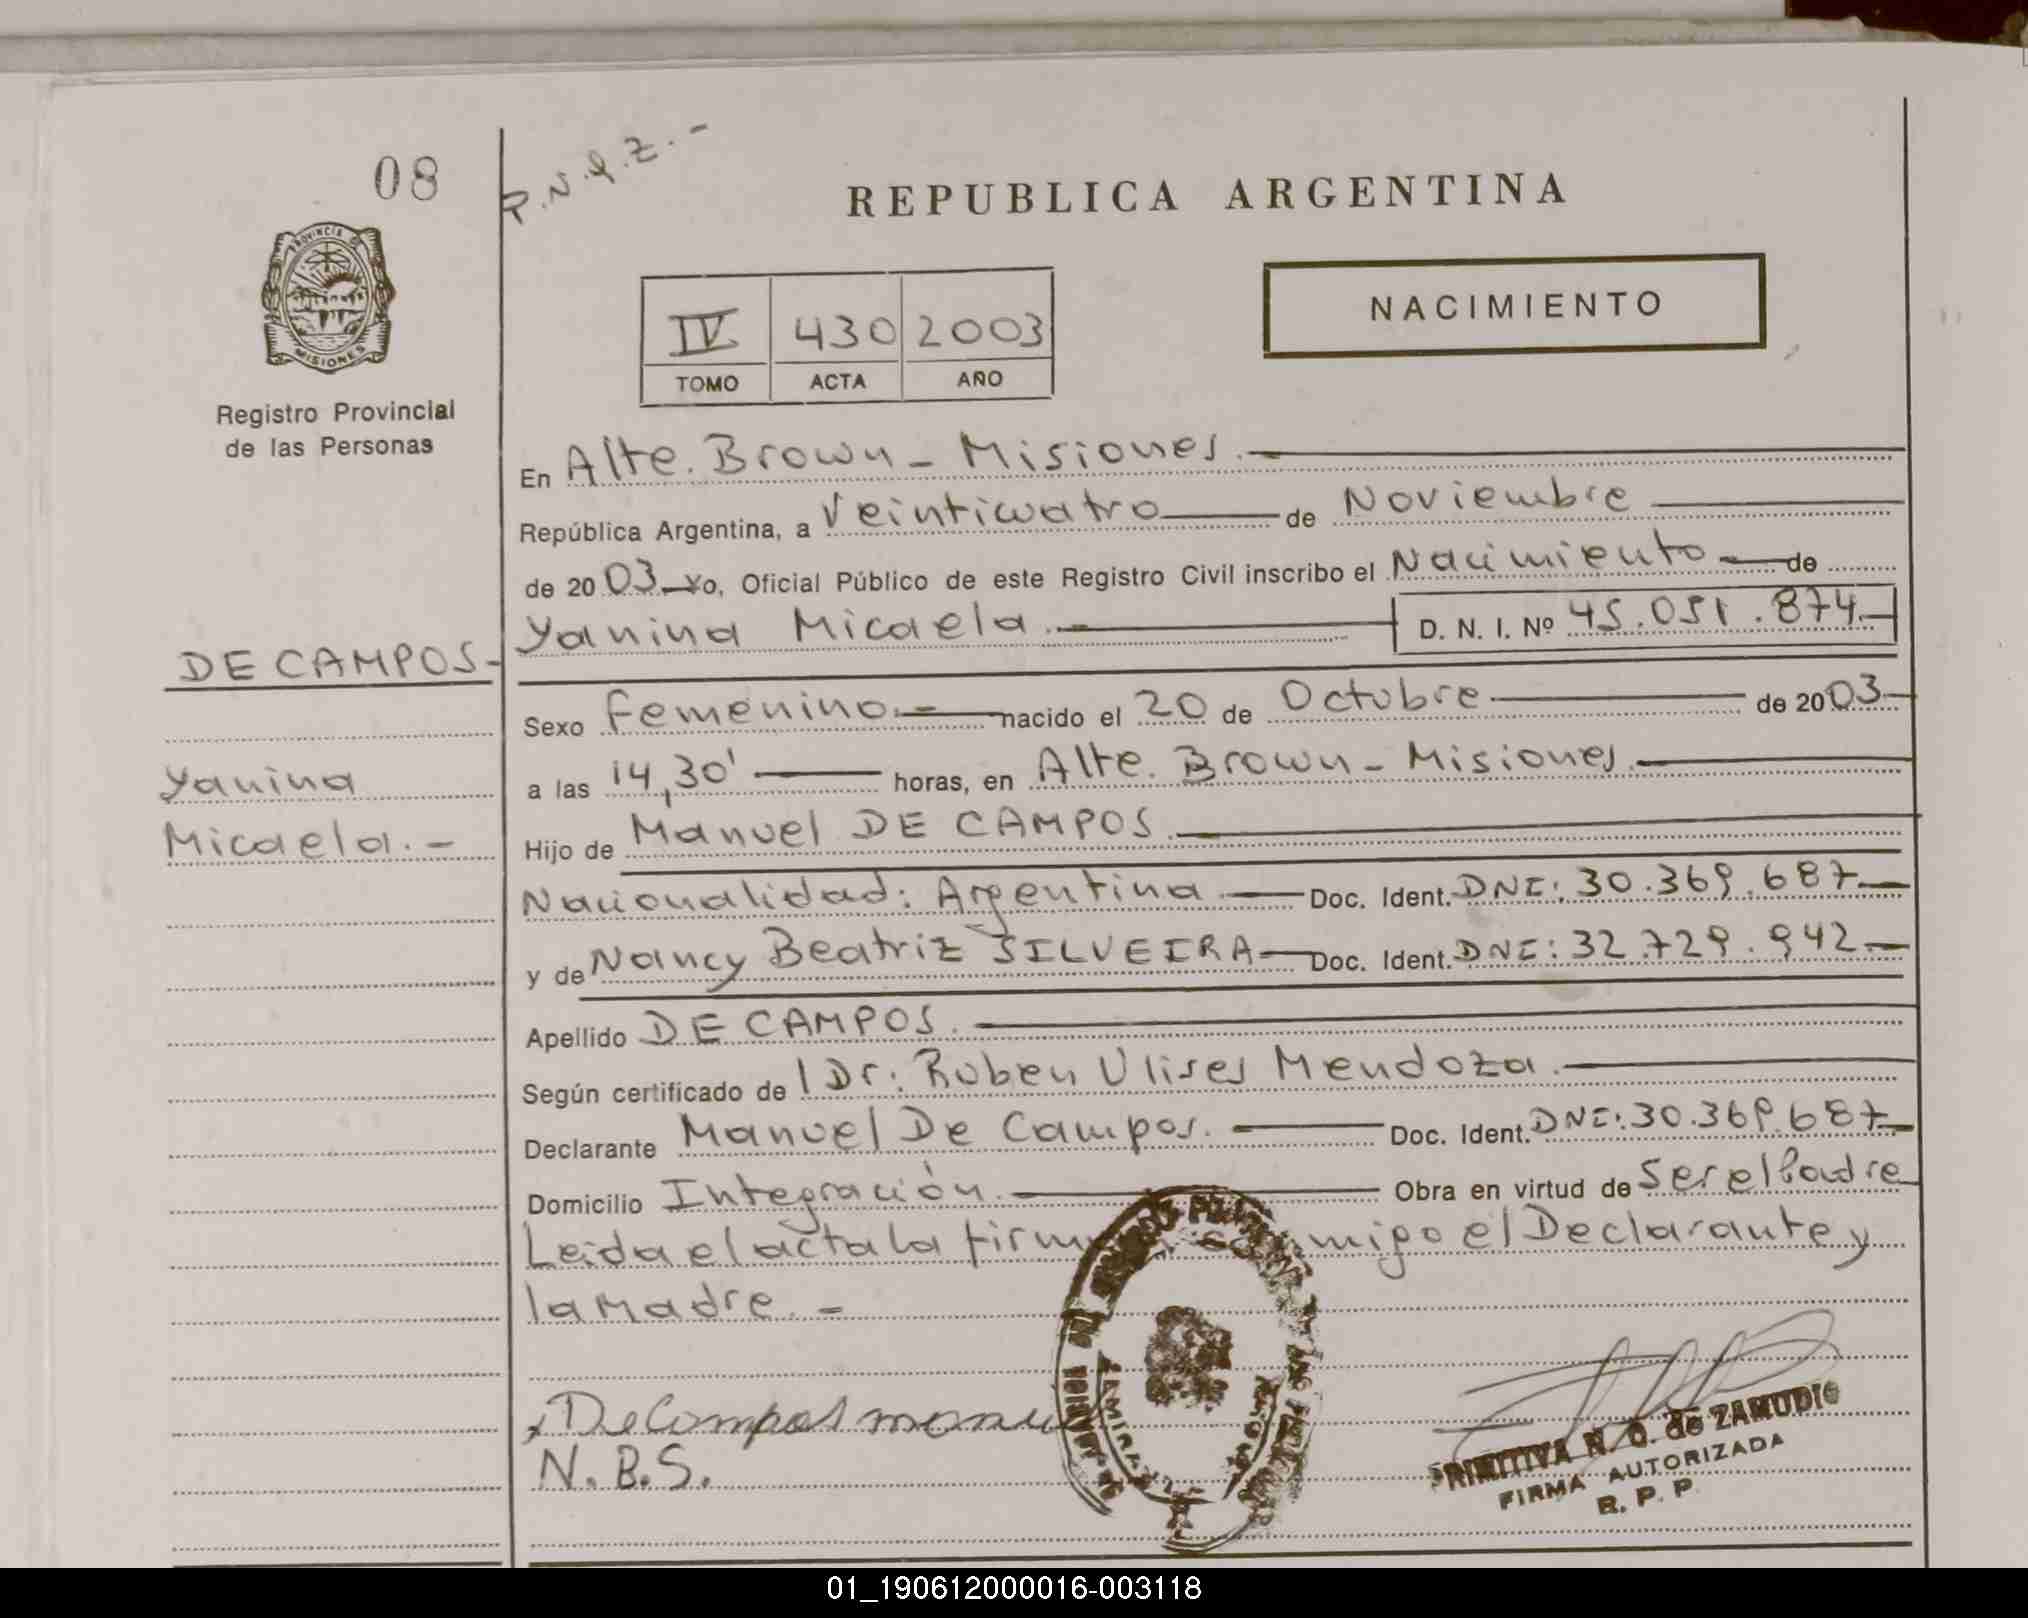 08
P.N.Q.Z.-
REPUBLICA ARGENTINA
PROVINCIA DE
MISIONES
IV 430 2003
TOMO ACTA AÑO
NACIMIENTO
Registro Provincial
de las Personas
En Alte. Brown - Misiones.
República Argentina, a Veinticuatro de Noviembre
de 20 03 Yo, Oficial Público de este Registro Civil inscribo el Nacimiento de
Yanina Micaela. D. N. I. Nº 45.051.874.
DE CAMPOS-
Sexo Femenino.- nacido el 20 de Octubre de 20 03
Yanina
a las 14,30' horas, en Alte. Brown - Misiones.
Micaela.-
Hijo de Manuel DE CAMPOS.
Nacionalidad: Argentina. Doc. Ident. DNI: 30.369.687
y de Nancy Beatriz SILVEIRA Doc. Ident. DNI: 32.729.942.
Apellido DE CAMPOS.
Según certificado de l Dr. Ruben Ulises Mendoza.
Declarante Manuel De Campos. Doc. Ident. DNI: 30.369.687
Domicilio Integración. Obra en virtud de Ser el Padre
Leida el acta la firm migo el Declarante y
la Madre.-
De Campos manu
N.B.S.
PRIMITIVA N. Q. de ZAMUDIO
FIRMA AUTORIZADA
R. P. P.
01_190612000016-003118